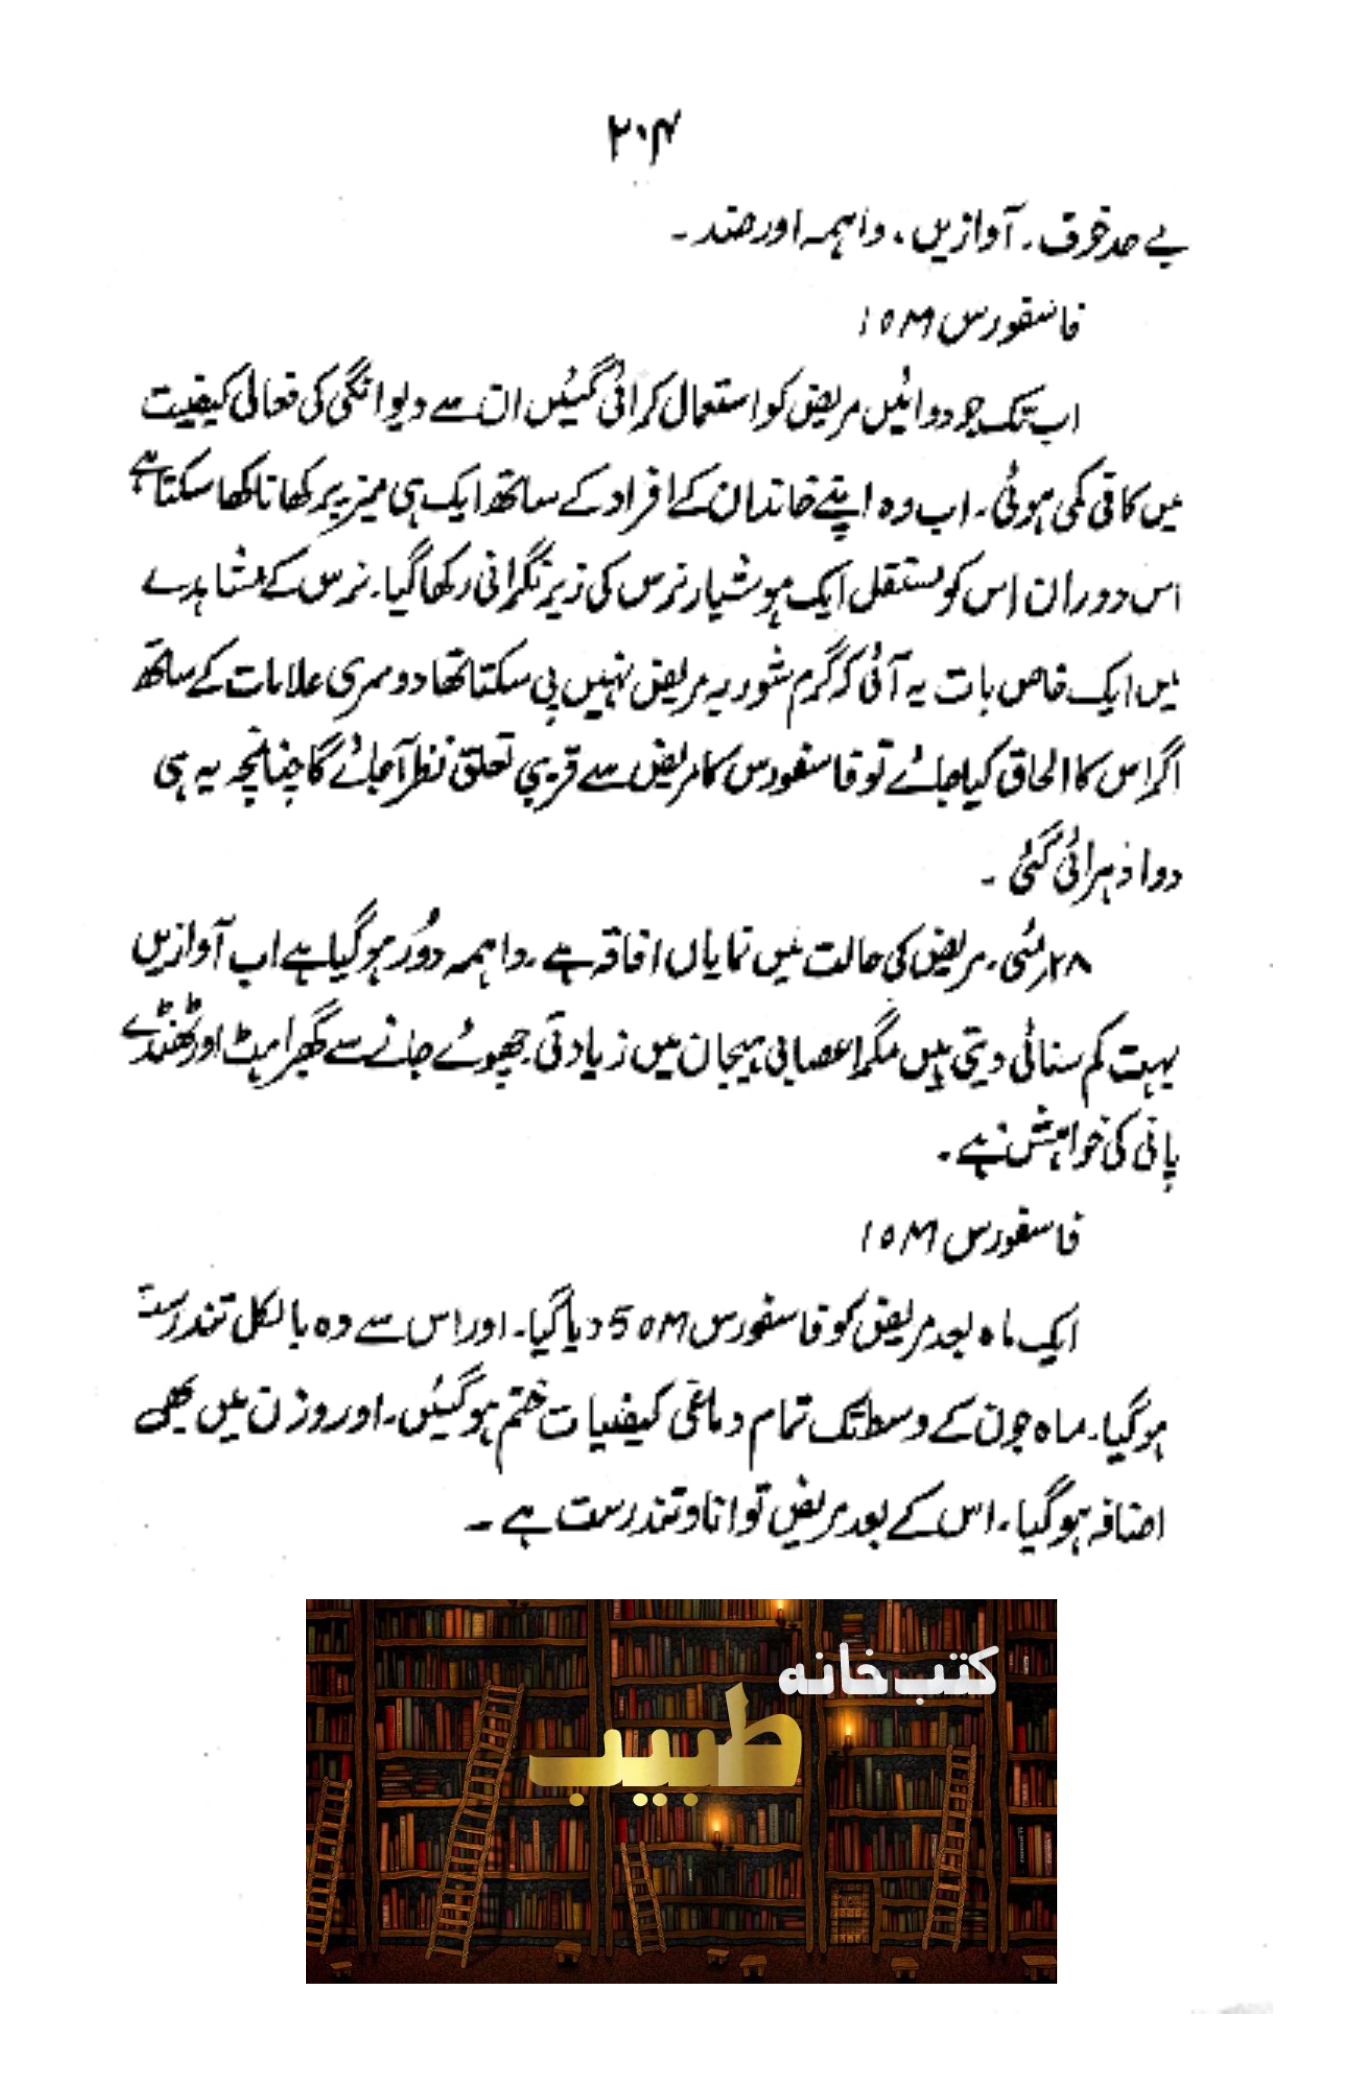 ۲۰۴
بے حد خوف۔ آوازیں، واہمہ اور ضد۔
فاسفورس 10M
اب تک جو دوائیں مریض کو استعمال کرائی گئیں ان سے دیوانگی کی فعالی کیفیت
میں کافی کمی ہوئی۔ اب وہ اپنے خاندان کے افراد کے ساتھ ایک ہی میز پر کھانا کھا سکتا ہے
اس دوران اس کو مستقل ایک ہوشیار نرس کی زیر نگرانی رکھا گیا۔ نرس کے مشاہدے
میں ایک خاص بات یہ آئی کہ گرم شوربہ مریض نہیں پی سکتا تھا دوسری علامات کے ساتھ
اگر اس کا الحاق کیا جائے تو فاسفورس کا مریض سے قریبی تعلق نظر آجائے گا چنانچہ یہ ہی
دوا دہرائی گئی۔
۲۸ مئی۔ مریض کی حالت میں نمایاں افاقہ ہے۔ واہمہ دور ہوگیا ہے اب آوازیں
بہت کم سنائی دیتی ہیں مگر اعصابی ہیجان میں زیادتی۔ چھوئے جانے سے گھبراہٹ اور ٹھنڈے
پانی کی خواہش ہے۔
فاسفورس 10M
ایک ماہ بعد مریض کو فاسفورس 50M دیا گیا۔ اور اس سے وہ بالکل تندرست
ہوگیا۔ ماہ جون کے وسط تک تمام دماغی کیفیات ختم ہوگئیں۔ اور وزن میں بھی
اضافہ ہوگیا۔ اس کے بعد مریض توانا و تندرست ہے۔
کتب خانہ
طبیب